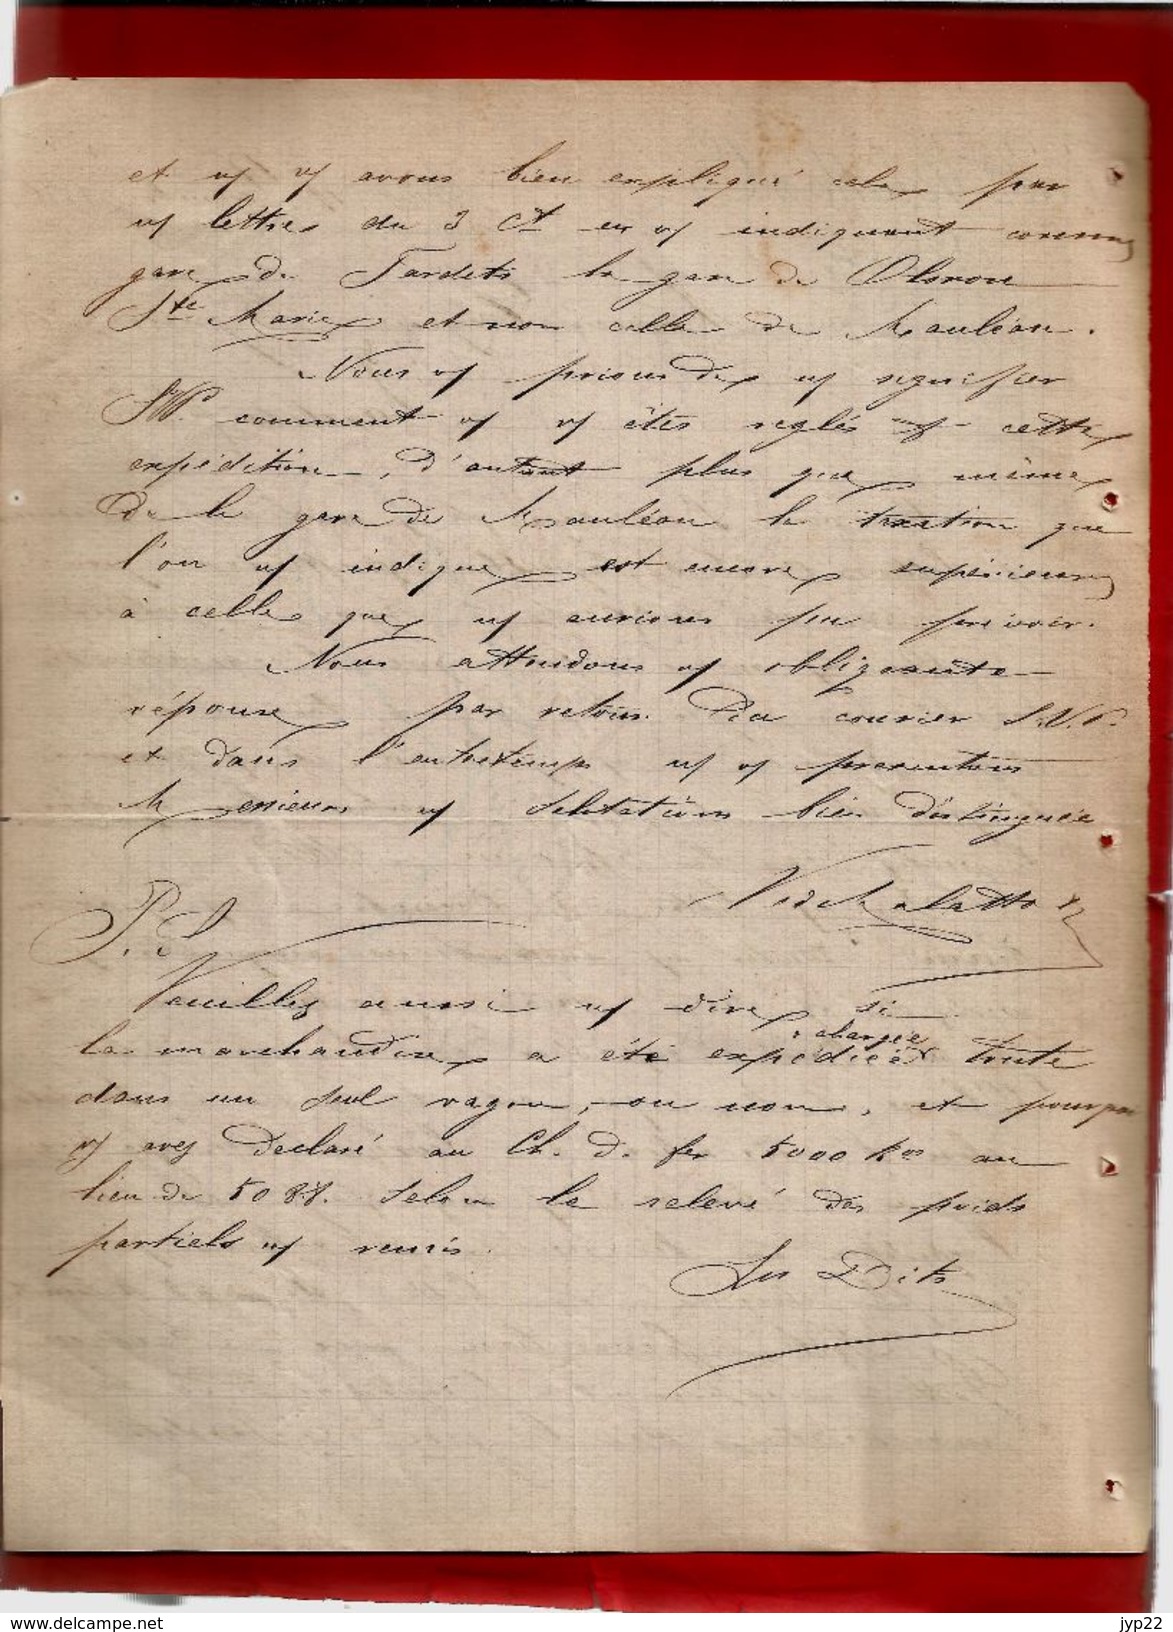 et n/ v/ avons bien expliqué cela par
n/ lettre du 3 Ct en v/ indiquant comme
gare de Tardets la gare de Oloron
Ste Marie et non celle de Mauléon.
Nous v/ prions de n/ signifier
SVP. comment v/ v/ êtes reglés cette
expédition, d'autant plus que même
de la gare de Mauléon la taxation que
l'on n/ indique est encore supérieure
à celle que n/ aurions pu prévoir.
Nous attendons v/ obligeante
réponse par retour du courier S.V.P.
et dans l'entretemps n/ v/ presentons
Messieurs n/ salutations bien distinguée
P.S
Veuillez aussi n/ dire si
chargée
la marchandise a été expédiée toute
dans un seul vagon, ou non, et pourquoi
v/ avez déclaré au Ch. d. fer 5000 Kos au
lieu de 5088. selon le relevé des poids
partiels n/ remis.
Les Dits
www.delcampe.net
jyp22